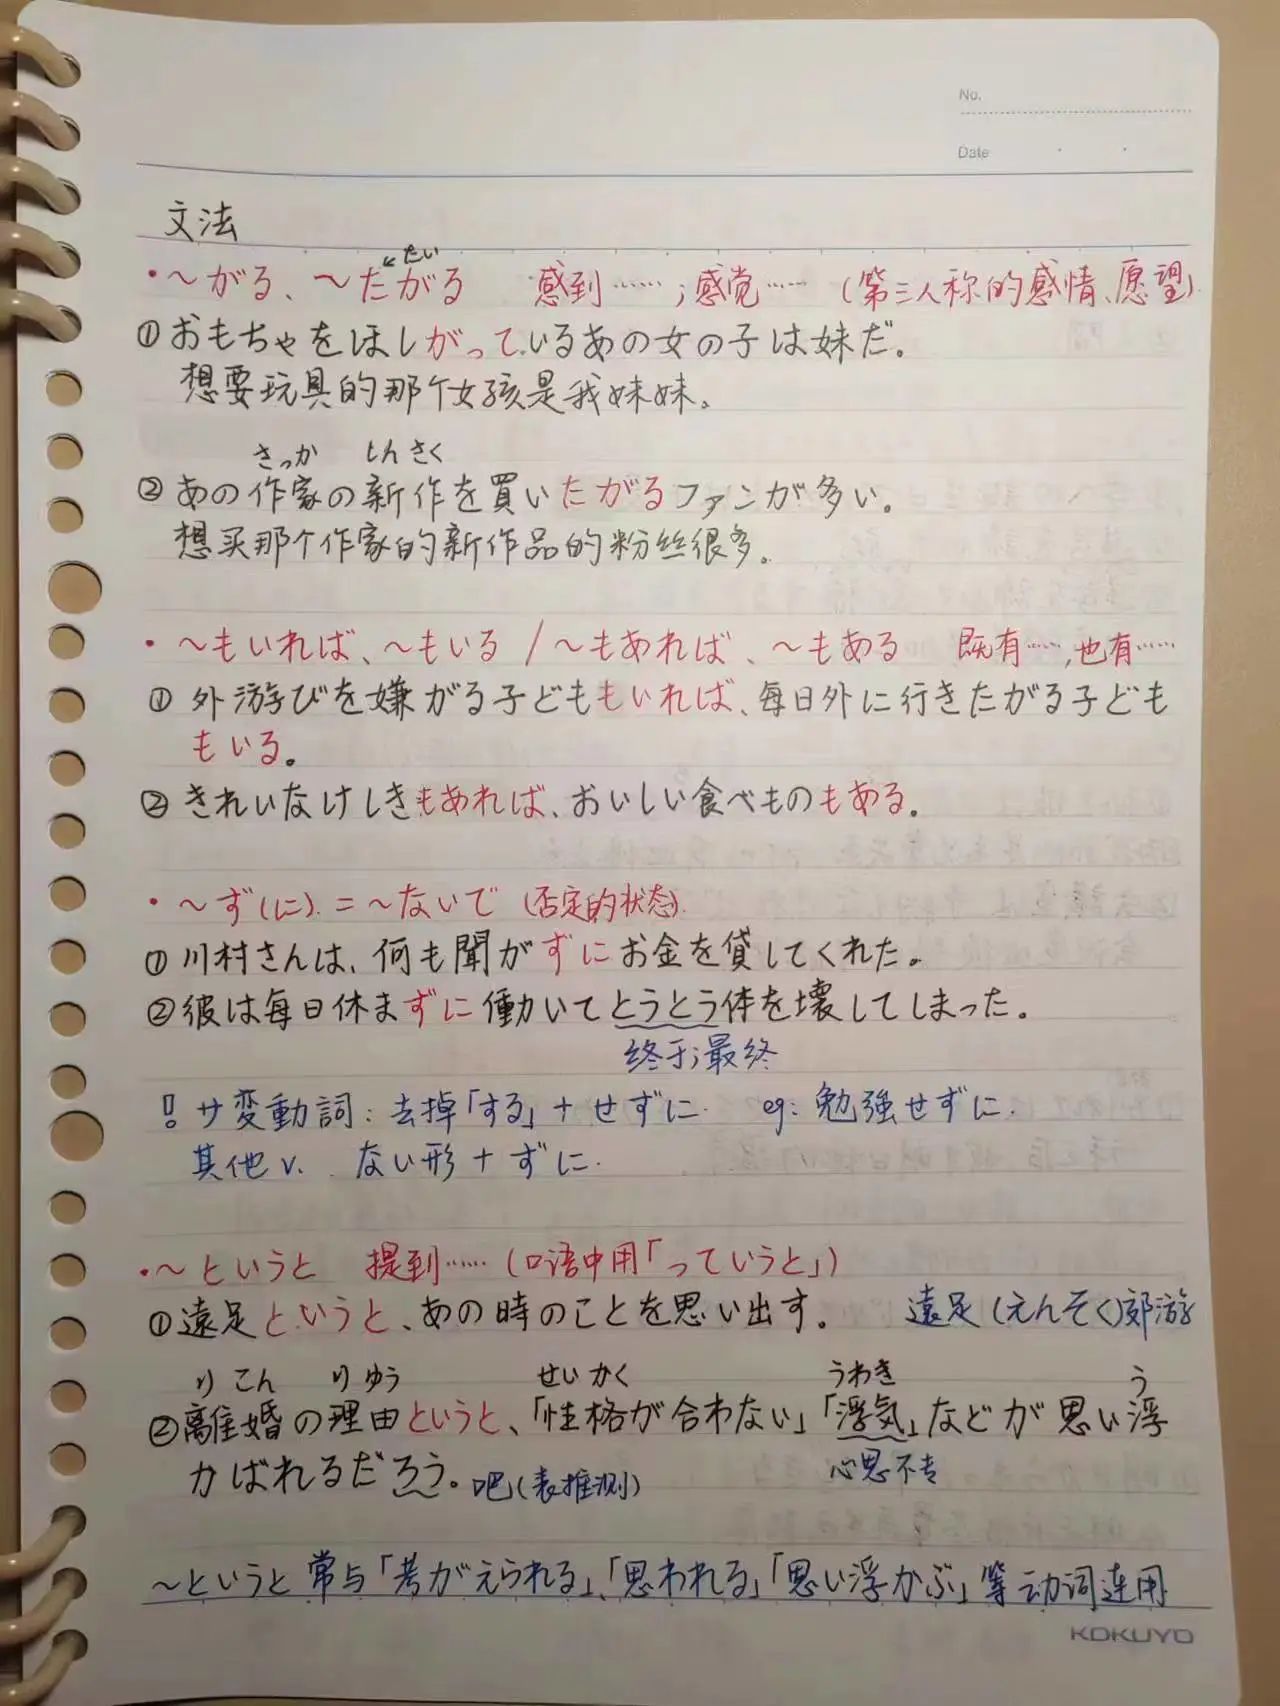 No.
Date
文法
たい
・～がる、～たがる 感到……；感觉……（第三人称的感情、愿望）
①おもちゃをほしがっているあの女の子は妹だ。
想要玩具的那个女孩是我妹妹。
さっか しんさく
②あの作家の新作を買いたがるファンが多い。
想买那个作家的新作品的粉丝很多。
・～もいれば、～もいる / ～もあれば、～もある 既有……,也有……
①外游びを嫌がる子どももいれば、毎日外に行きたがる子ども
もいる。
②きれいなけしきもあれば、おいしい食べものもある。
・～ず(に) = ～ないで (否定的状态)
①川村さんは、何も聞がずにお金を貸してくれた。
②彼は毎日休まずに働いてとうとう体を壊してしまった。
终于；最终
! サ変動詞：去掉「する」+ せずに. eg: 勉強せずに.
其他 v. ない形 + ずに.
・～というと 提到……（口语中用「っていうと」）
①遠足というと、あの時のことを思い出す。 遠足(えんそく)郊游
りこん りゆう せいかく うわき う
②離婚の理由というと、「性格が合わない」「浮気」などが思い浮
かばれるだろう。吧(表推测) 心思不专
～というと常与「考がえられる」、「思われる」「思い浮かぶ」等动词连用
KOKUYO